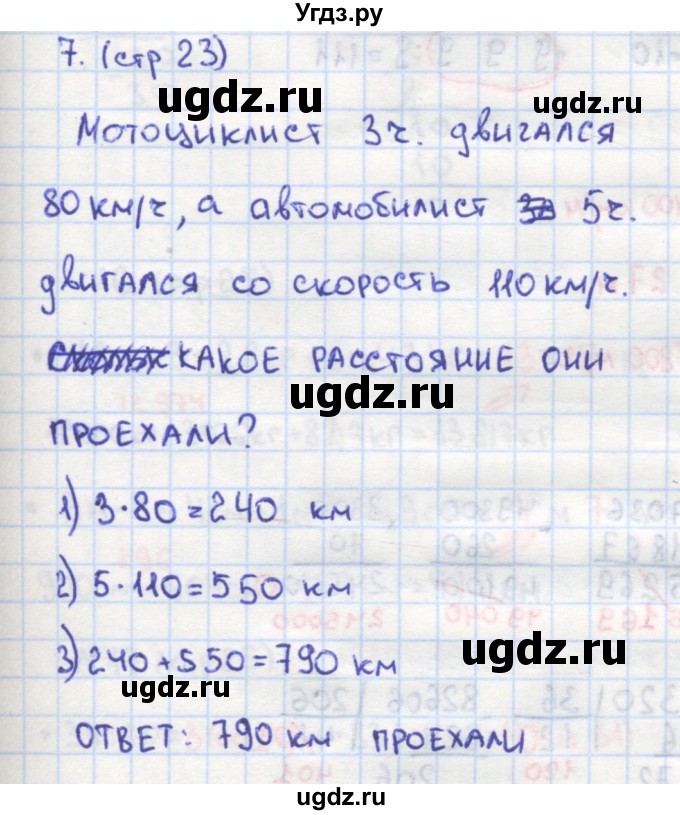 Угдз.ру
7. (стр 23)
ugdz.ru
ugdz.ru
Мотоциклист 3ч. двигался
80 км/ч, а автомобилист 5ч.
двигался со скорость 110 км/ч.
КАКОЕ РАССТОЯНИЕ ОНИ
ugdz.ru
ПРОЕХАЛИ?
1) 3·80=240 км
2) 5·110=550 км
ugdz.ru
3) 240+550=790 км
ugdz.ru
ugdz.ru
ОТВЕТ: 790 км ПРОЕХАЛИ
ugdz.ru